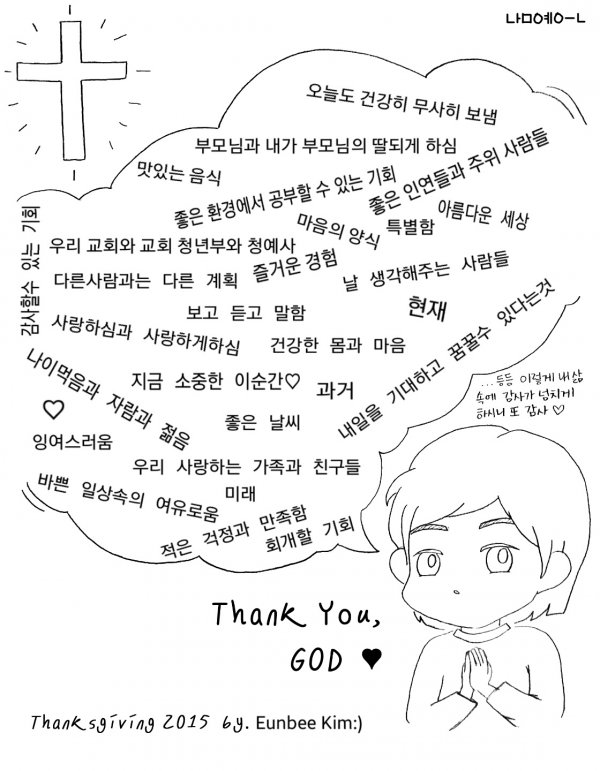 나미예ㅇㅡㄴ
오늘도 건강히 무사히 보냄
부모님과 내가 부모님의 딸되게 하심
맛있는 음식
좋은 환경에서 공부할 수 있는 기회
좋은 인연들과 주위 사람들
마음의 양식
특별함
아름다운 세상
감사할수 있는 기회
우리 교회와 교회 청년부와 청예사
즐거운 경험
다른사람과는 다른 계획
날 생각해주는 사람들
보고 듣고 말함
현재
사랑하심과 사랑하게하심
건강한 몸과 마음
내일을 기대하고 꿈꿀수 있다는것
나이먹음과 자람과 젊음
지금 소중한 이순간♡
과거
...등등 이렇게 내삶
속에 감사가 넘치게
하시니 또 감사 ♡
♡
잉여스러움
좋은 날씨
우리 사랑하는 가족과 친구들
바쁜 일상속의 여유로움
미래
적은 걱정과 만족함
회개할 기회
Thank You,
GOD ♥
Thanksgiving 2015 by. Eunbee Kim:)